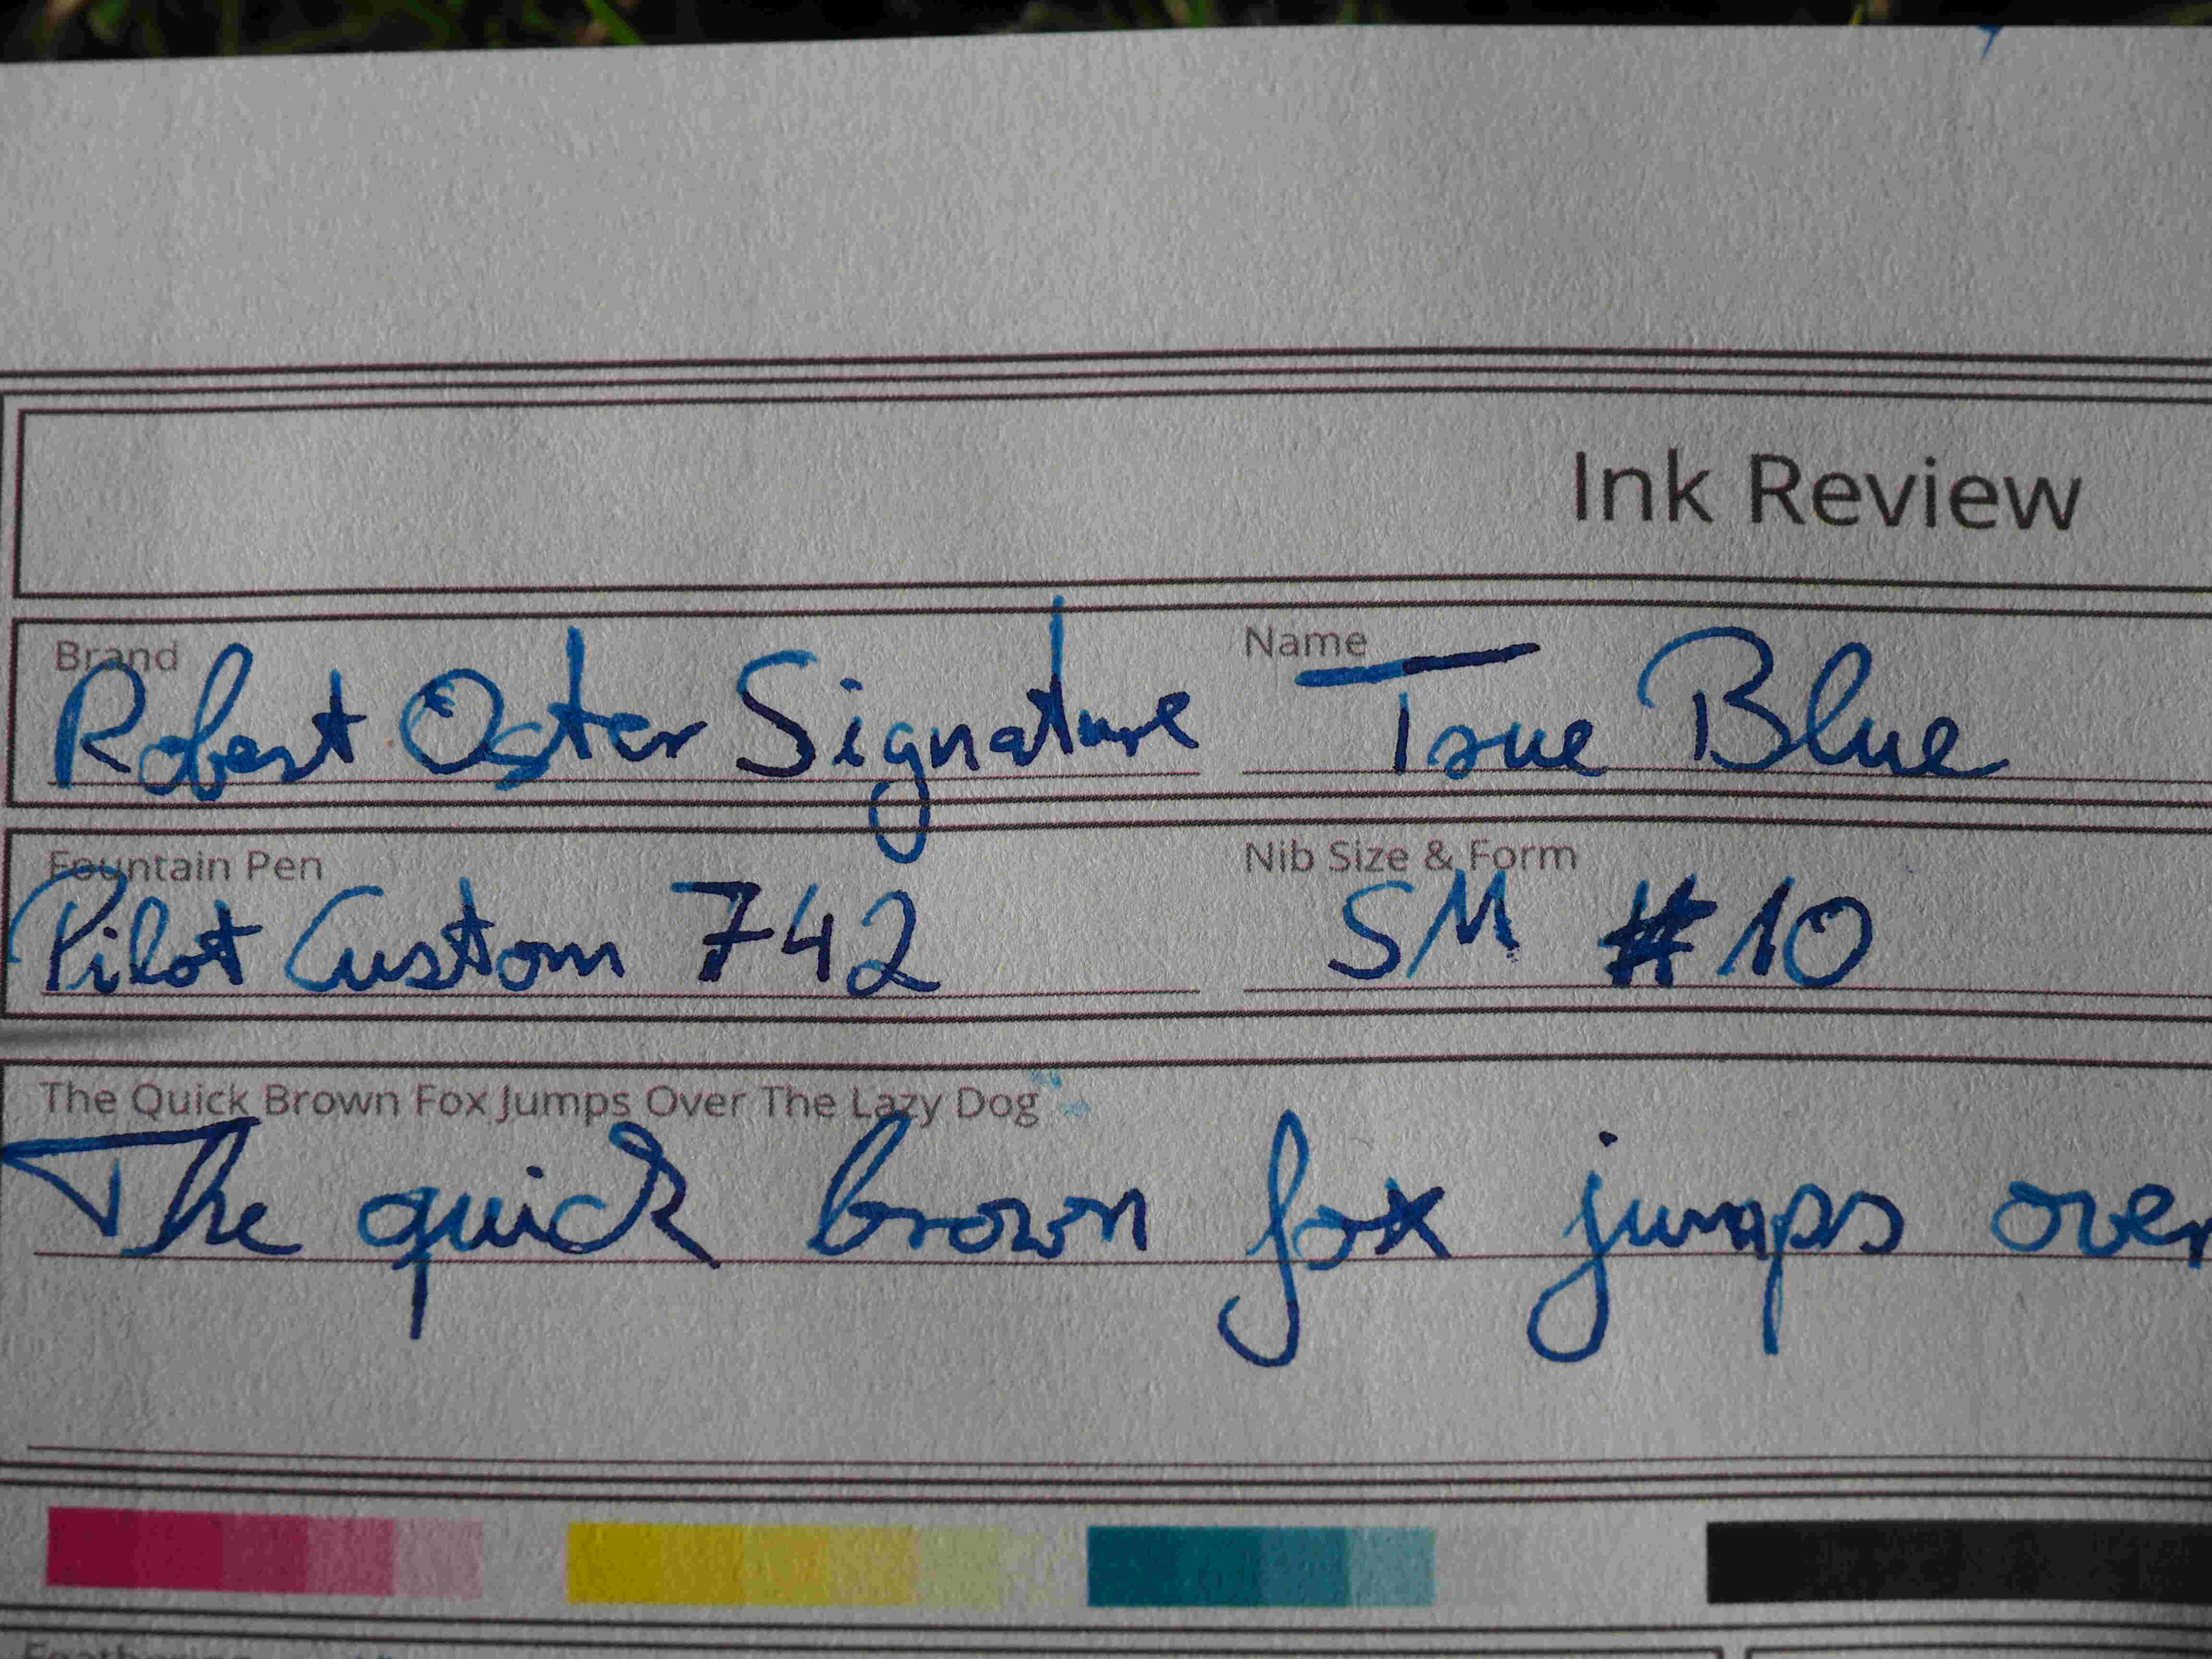 Ink Review
Brand
Robert Oster Signature
Name
True Blue
Fountain Pen
Pilot Custom 742
Nib Size & Form
SM #10
The Quick Brown Fox Jumps Over The Lazy Dog
The quick brown fox jumps over
Feathering